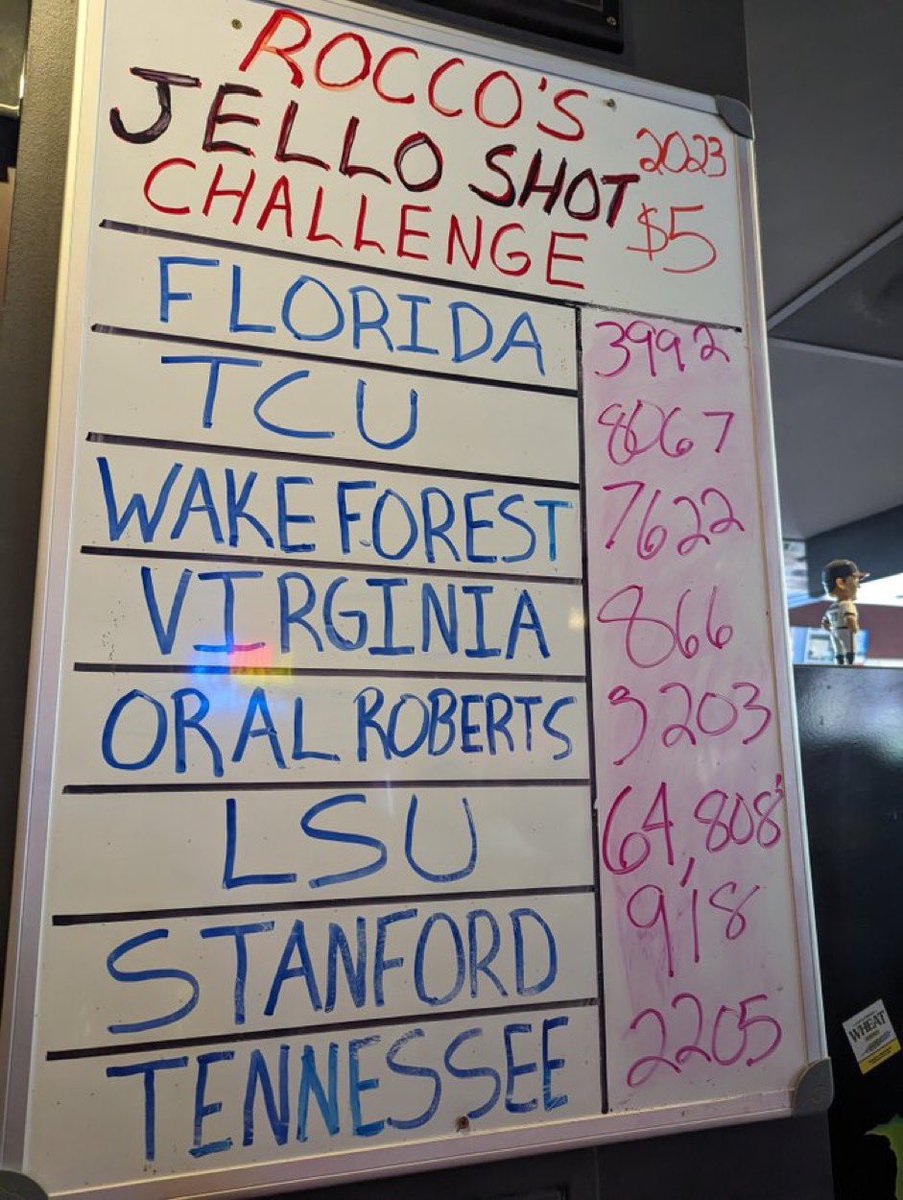 ROCCO'S
JELLO SHOT 2023
CHALLENGE $5
FLORIDA 3992
TCU 8067
WAKE FOREST 7622
VIRGINIA 866
ORAL ROBERTS 3203
LSU 64,808
STANFORD 918
TENNESSEE 2205
WHEAT